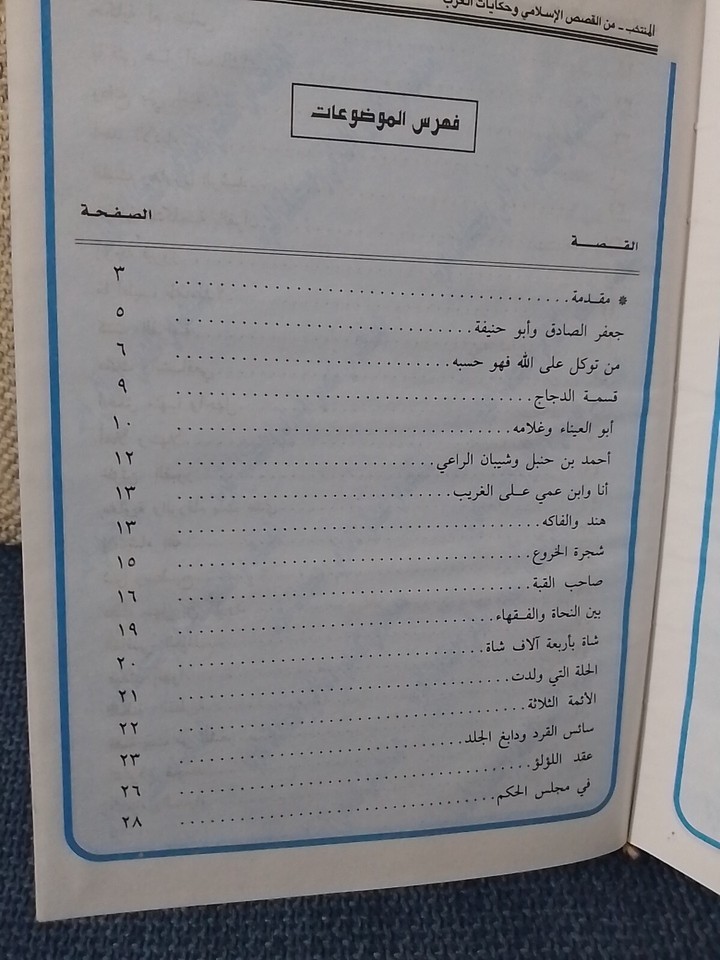 المنتخب - من القصص الإسلامي وحكايات العرب
فهرس الموضوعات
القـصـة الصـفـحـة
* مقـدمة ........ ٣
جعفر الصادق وأبو حنيفة ........ ٥
من توكل على الله فهو حسبه ........ ٦
قسمـة الدجاج ........ ٩
أبو العيناء وغلامه ........ ١٠
أحمد بن حنبل وشيبان الراعي ........ ١٢
أنا وابن عمي علـى الغريب ........ ١٣
هند والفاكه ........ ١٣
شجرة الخروع ........ ١٥
صاحب القبة ........ ١٦
بين النحاة والفـقهاء ........ ١٩
شاة بأربعة آلاف شاة ........ ٢٠
الحلة التي ولدت ........ ٢١
الأئمة الثلاثة ........ ٢٢
سائس القرد ودابغ الجلد ........ ٢٣
عقد اللؤلؤ ........ ٢٦
في مجلس الحكم ........ ٢٨